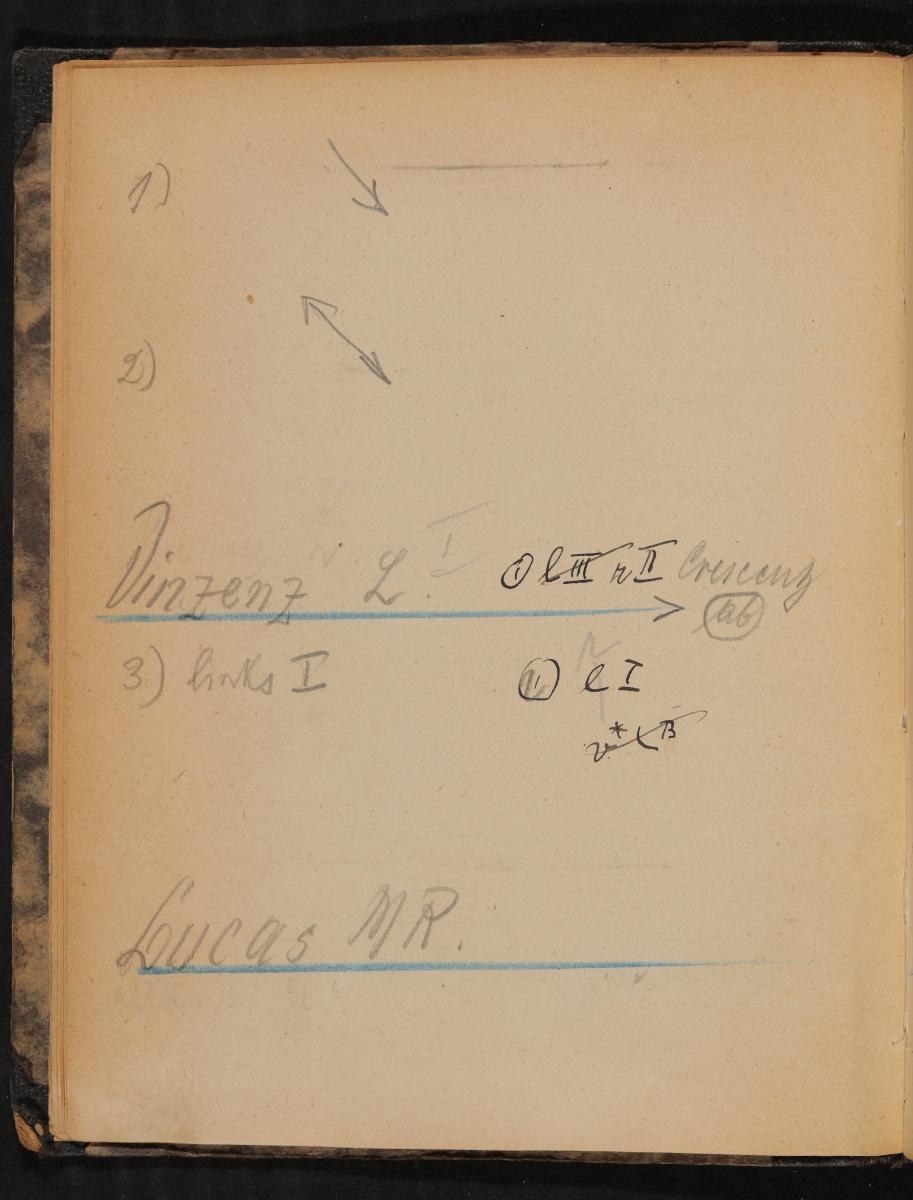 1)
2)
Vinzenz L. I ① l III r II Crescenz
ab
3) links I II) l I
Lucas MR.